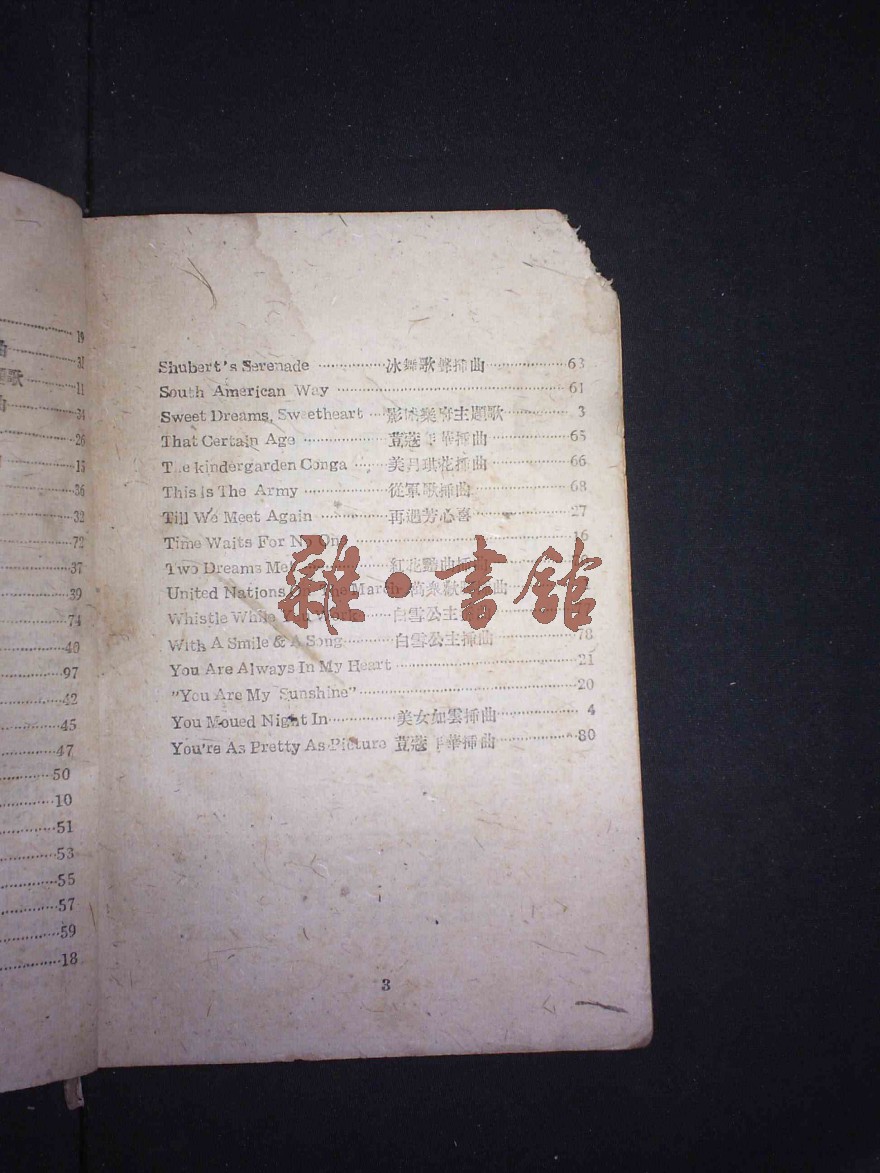 19
31
歌
11
34
26
15
36
32
72
37
39
74
40
97
42
45
47
50
10
51
53
55
57
59
18
Shubert's Serenade 冰舞歌聲插曲 63
South American Way 61
Sweet Dreams, Sweetheart 影城樂府主題歌 3
That Certain Age 荳蔻年華插曲 65
The kindergarden Conga 美月琪花插曲 66
This is The Army 從軍歌插曲 68
Till We Meet Again 再遇芳心喜 27
Time Waits For No One 16
Two Dreams Met 紅花艷曲插
United Nations On The March 萬衆歡
Whistle While You Work 白雪公主
With A Smile & A Song 白雪公主插曲 78
You Are Always In My Heart 21
"You Are My Sunshine" 20
You Moued Night In 美女如雲插曲 4
You're As Pretty As Picture 荳蔻年華插曲 80
雜·書館
3